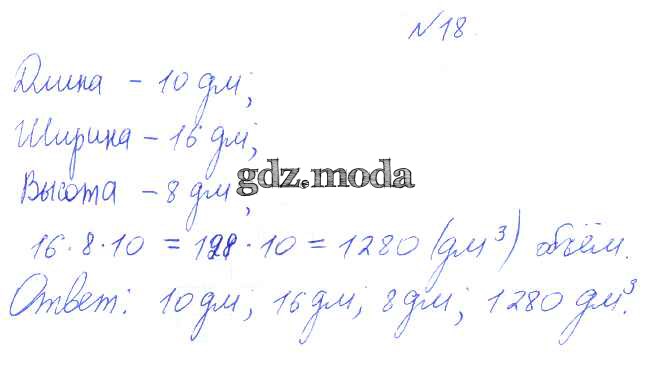 №18.
Длина – 10 дм;
Ширина – 16 дм;
Высота – 8 дм;
gdz.moda
16·8·10 = 128·10 = 1280 (дм³) объём.
Ответ: 10 дм; 16 дм; 8 дм; 1280 дм³.